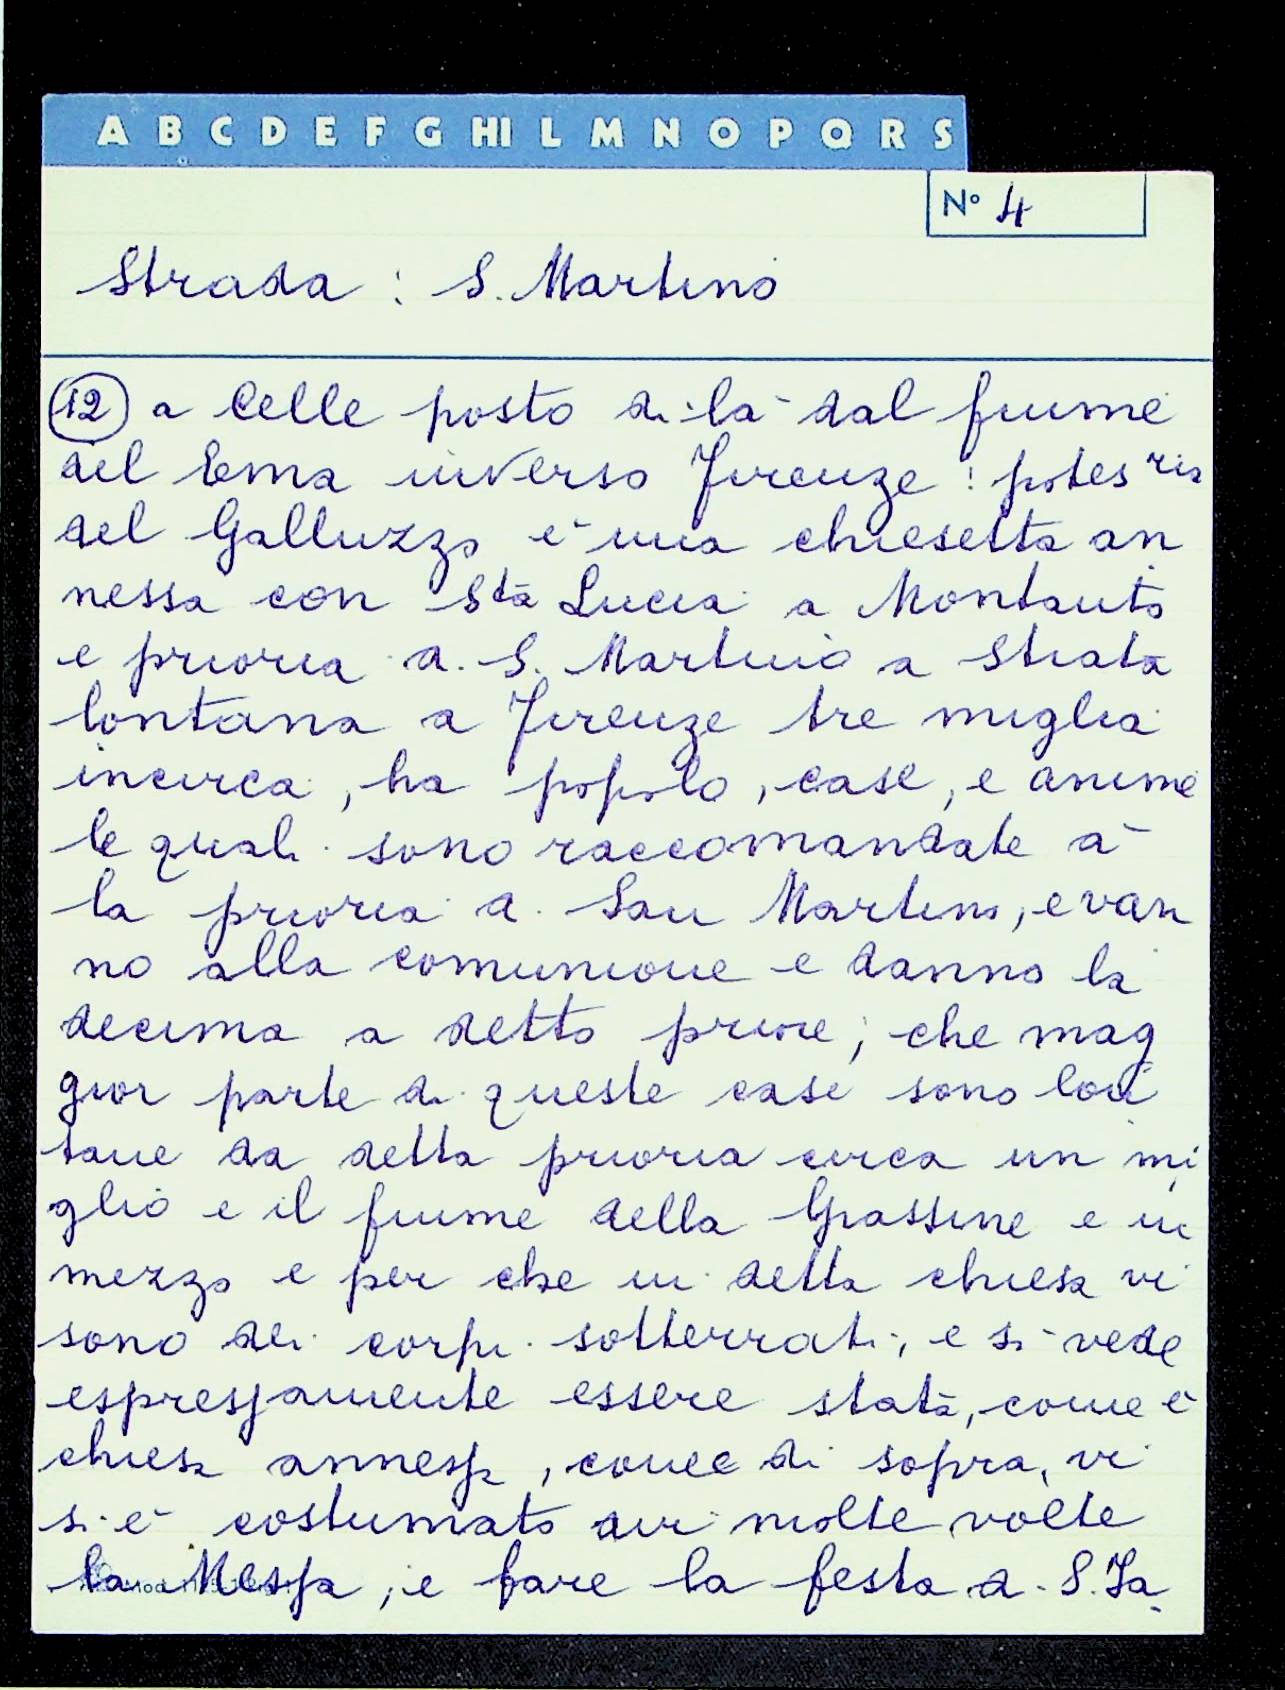 A B C D E F G HI L M N O P Q R S
N° 4
Strada : S. Martino
12 a Celle posto di là dal fiume
del Ema inverso Firenze : potes ria
del Galluzzo è una chiesetta an
nessa con Sta Lucia a Montauto
e prioria di S. Martino a Strata
lontana a Firenze tre miglia
incirca, ha popolo, case, e anime
le quali sono raccomandate à
la prioria di San Martino, e van
no alla comunione e danno la
decima a detto priore; che mag
gior parte di queste case sono lon
tane da detta prioria circa un mi
glio e il fiume della Grassine e in
mezzo e per che in detta chiesa vi
sono dei corpi sotterrati, e si vede
espressamente essere stata, come è
chiesa annessa, come di sopra, vi
si è costumato dir molte volte
la Messa, e fare la festa di S. Ja